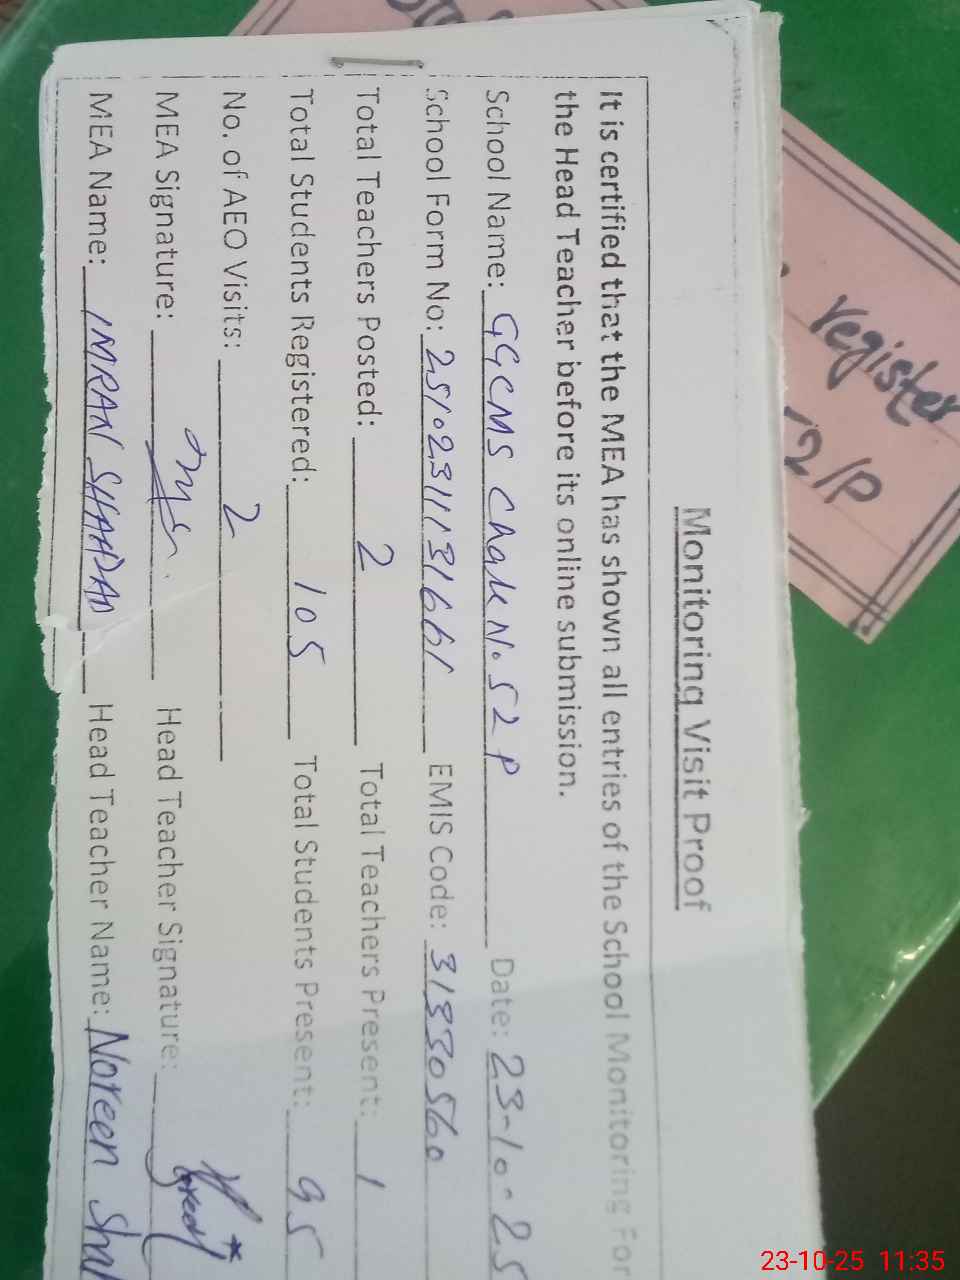 Monitoring Visit Proof
It is certified that the MEA has shown all entries of the School Monitoring For
the Head Teacher before its online submission.
School Name: GGCMS Chak No. 52 P Date: 23-10-25
School Form No: 25102311131661 EMIS Code: 31330560
Total Teachers Posted: 2 Total Teachers Present: 1
Total Students Registered: 105 Total Students Present: 95
No. of AEO Visits: 2
MEA Signature: Head Teacher Signature:
MEA Name: IMRAN SHAHZAD Head Teacher Name: Noreen
register
-2/P
23-10-25 11:35